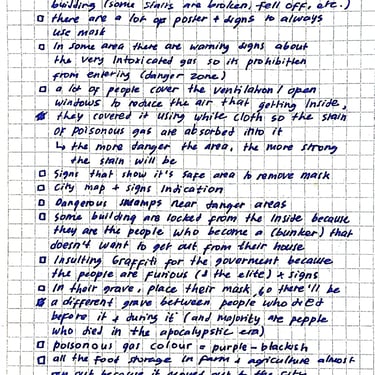 building (some stairs are broken, fell off, etc.)
□ there are a lot of poster + signs to always
use mask
□ In some area there are warning signs about
the very Intoxicated gas so its prohibitten
from entering (danger zone)
□ a lot of people cover the ventilation / open
windows to reduce the air that getting Inside,
they covered it using white cloth so the stain
of poisonous gas are absorbed into it
↳ the more danger the area, the more strong
the stain will be
□ Signs that show it's safe area to remove mask
□ City map + signs Indication
□ Dangerous swamps near danger areas
□ Some building are locked from the Inside because
they are the people who become a (bunker) that
doesn't want to get out from their house
□ Insulting Graffiti for the goverment because
the people are furious (& the elite) + signs
□ In their grave, place their mask, so there'll be
a different grave between people who died
before it + during it (and majority are people
who died in the apocalypstic era)
□ poisonous gas colour = purple - blackish
□ all the food storage in farm + agriculture almost
run out because it moved out to the city